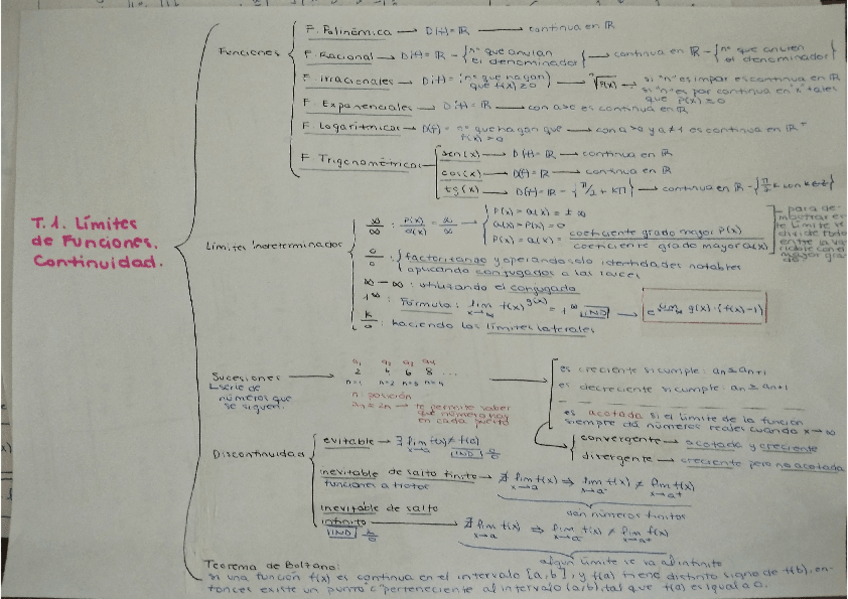 T.1. Límites
de Funciones.
Continuidad.
Funciones
F. Polinómica → D(f)= ℝ → continua en ℝ
F. Racional → D(f)= ℝ - {nº que anulan el denominador} → continua en ℝ - {nº que anulen el denominador}
F. irracionales → D(f)= {nº que hagan que f(x)≥0} → ⁿ√P(x) → si "n" es impar es continua en ℝ
si "n" es par continua en "x" tales que P(x)≥0
F. Exponenciales → D(f)= ℝ → con a>0 es continua en ℝ
F. Logarítmicas → D(f)= nº que hagan que → con a>0 y a≠1 es continua en ℝ⁺
F. Trigonométricas
sen(x) → D(f)= ℝ → continua en ℝ
cos(x) → D(f)= ℝ → continua en ℝ
tg(x) → D(f)= ℝ - {π/2 + kπ} → continua en ℝ -
Límites indeterminados
∞/∞ : P(x)/Q(x) = ∞/∞
P(x) > Q(x) = ± ∞
Q(x) > P(x) = 0
P(x) = Q(x) = coeficiente grado mayor P(x)
coeficiente grado mayor Q(x)
para demostrar el límite se divide todo entre la variable con el mayor grado
0/0 : factorizando y operando solo identidades notables
aplicando conjugados a las raíces
∞ - ∞ : utilizando el conjugado
1^∞ Fórmula: lim x→∞ f(x)^g(x) = 1^∞ IND → e^lim x→∞ g(x)·(f(x)-1)
k/0 : haciendo los límites laterales
Sucesiones
serie de
números que
se siguen.
a₁ a₂ a₃ a₄
2 4 6 8 ...
n=1 n=2 n=3 n=4
n: posición
aₙ = 2n → te permite saber
que número hay
en cada puesto
es creciente si cumple: aₙ ≤ aₙ+1
es decreciente si cumple: aₙ ≥ aₙ+1
es acotada si el límite de la función
siempre da números reales cuando x→∞
convergente → acotada y creciente
divergente → creciente pero no acotada
Discontinuidad
evitable → ∃ lim x→a f(x) ≠ f(a)
IND 0/0
inevitable de salto finito → ∄ lim x→a f(x) ⇒ lim x→a⁻ f(x) ≠ lim x→a⁺ f(x)
funciones a trozos
dan números finitos
inevitable de salto
infinito → ∄ lim x→a f(x) ⇒ lim x→a⁻ f(x) ≠ lim x→a⁺ f(x)
IND k/0
algún límite se va al infinito
Teorema de Bolzano:
Si una función f(x) es continua en el intervalo [a,b], y f(a) tiene distinto signo de f(b), en-
tonces existe un punto c perteneciente al intervalo (a,b), tal que f(c) es igual a 0.